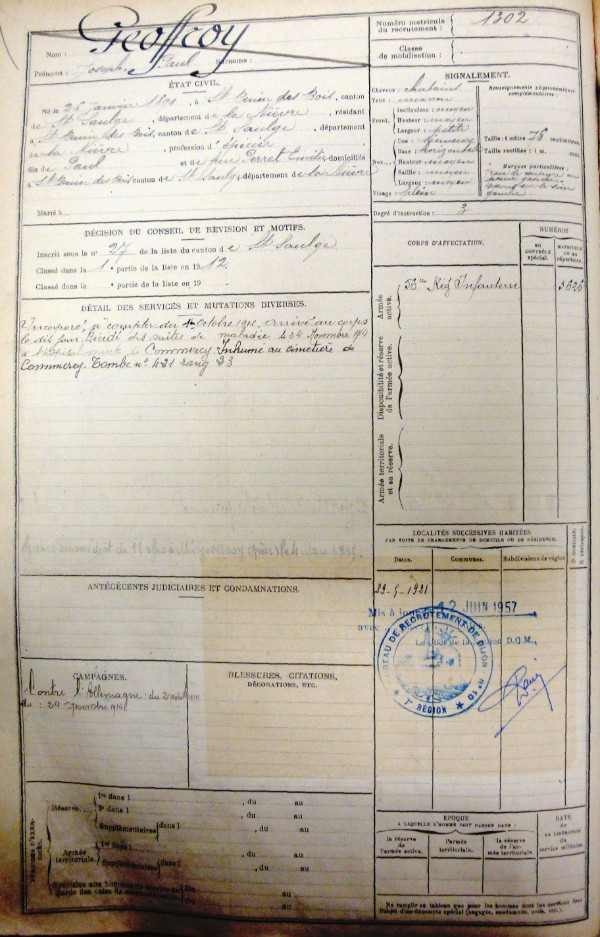 Geoffroy
Nom :
Prénoms : Joseph Paul Surnoms :
Numéro matricule du recrutement : 1302
Classe de mobilisation :
ÉTAT CIVIL.
Né le 26 janvier 1891, à St Benin des Bois, canton
de St Saulge, département de la Nièvre, résidant
à St Benin des Bois, canton de St Saulge, département
de la Nièvre, profession d'épicier
fils de Paul et de feu Perret domiciliés
à St Benin des Bois canton de St Saulge, département de la Nièvre
Marié à
SIGNALEMENT.
Cheveux : chatain
Yeux : marron
Front. Inclinaison : moyen
Hauteur : moyen
Largeur : petite
Nez. Dos :
Base : horizontal
Hauteur : moyen
Saillie : moyen
Largeur : moyen
Visage : plein
Renseignements physionomiques complémentaires :
Taille : 1 mètre 76 centimètres.
Taille rectifiée : 1 m.
Marques particulières :
gauche
Degré d'instruction : 3
DÉCISION DU CONSEIL DE RÉVISION ET MOTIFS.
Inscrit sous le n° 27 de la liste du canton de St Saulge
Classé dans la 1e partie de la liste en 1912.
Classé dans la e partie de la liste en 19
DÉTAIL DES SERVICES ET MUTATIONS DIVERSES.
Incorporé à compter du octobre 1912, arrivé au corps
le dit jour. Décédé des suites de maladie le 24 Novembre 1914
à de Commercy. Inhumé au cimetière de
Commercy. Tombe n° 421 rang 33
CORPS D'AFFECTATION.
NUMÉROS
au contrôle spécial.
matricule ou au répertoire.
Armée active.
56me Rég Infanterie
5626
Disponibilité et réserve de l'armée active.
Armée territoriale et sa réserve.
LOCALITÉS SUCCESSIVES HABITÉES
PAR SUITE DE CHANGEMENTS DE DOMICILE OU DE RÉSIDENCE.
Dates.
Communes.
Subdivisions de région
29-5-1921
Mis à jour 12 JUIN 1957
D.Q.M.,
BUREAU DE RECRUTEMENT DE DIJON N° 10
7e RÉGION
ANTÉCÉDENTS JUDICIAIRES ET CONDAMNATIONS.
CAMPAGNES.
Contre l'Allemagne : du 2 août 1914
au : 24 Novembre 1914
BLESSURES, CITATIONS,
DÉCORATIONS, ETC.
Réserve...
1re dans l , du au
2e dans l , du au
Supplémentaires dans l , du au
Armée territoriale.
1re dans l , du au
Supplémentaires dans l , du au
du au
ÉPOQUE
À LAQUELLE L'HOMME DOIT PASSER DANS :
la réserve de l'armée active.
l'armée territoriale.
la réserve de l'armée territoriale.
DATE de LA LIBÉRATION du service militaire.
Ne remplir ce tableau que pour les hommes dont les services font
l'objet d'un décompte spécial (engagés, condamnés, omis, etc.).